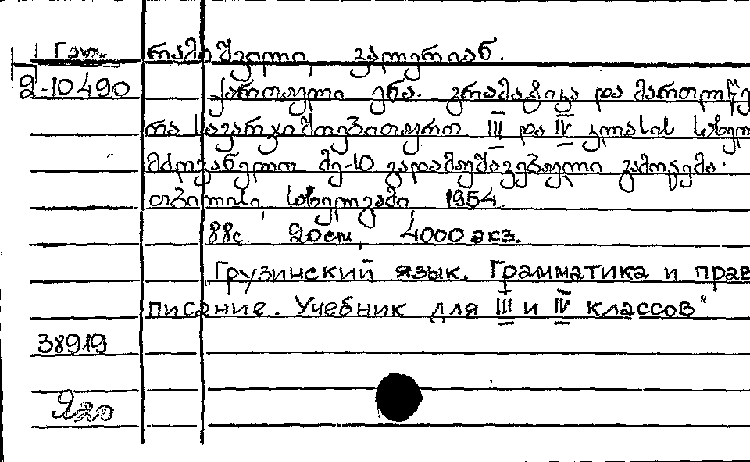 Гам. რამიშვილი, ვალერიან.
2-10490 ქართული ენა. გრამატიკა და მართლწე
რა სავარჯიშოებითურთ III და IV კლასის სახელ
მძღვანელო მე-10 გადამუშავებული გამოცემა.
თბილისი, სახელგამი 1954.
88с 20см, 4000 экз.
Грузинский язык. Грамматика и прав
писание. Учебник для III и IV классов"
38919